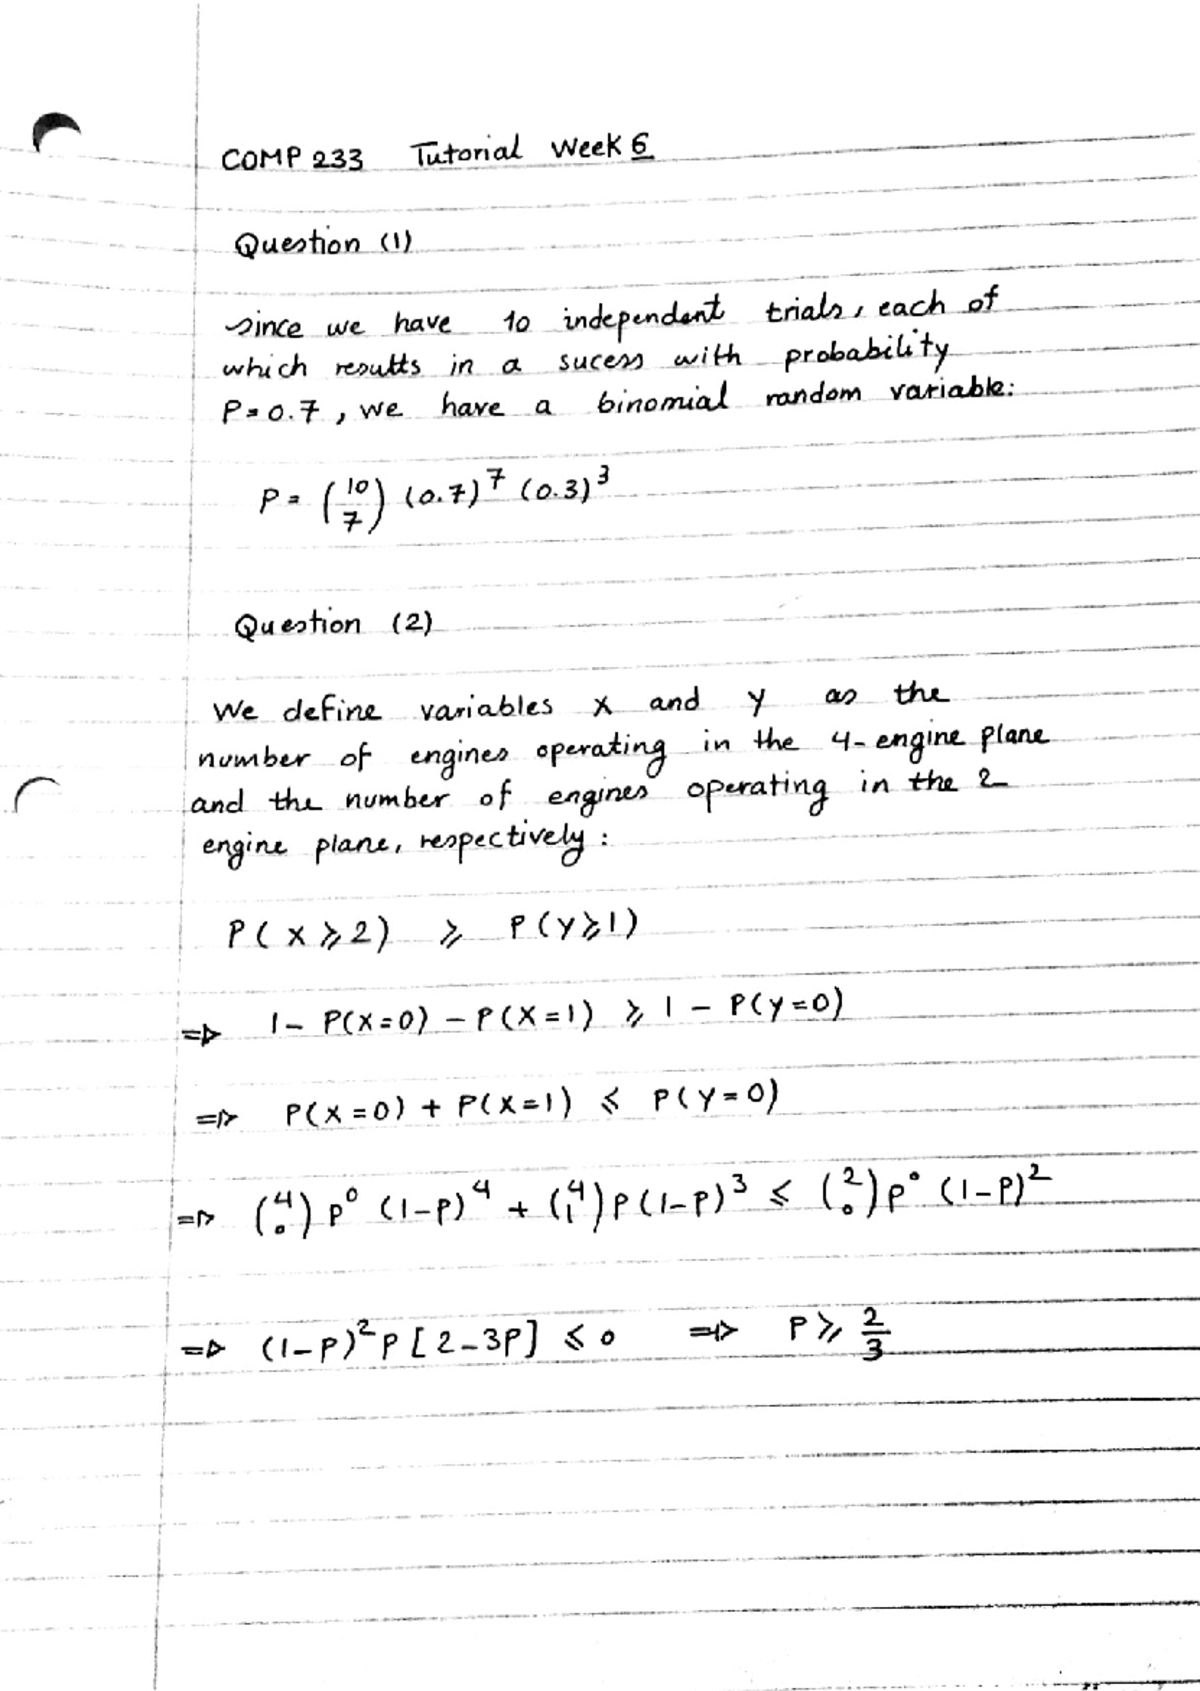 COMP 233 Tutorial Week 6
Question (1)
since we have 10 independent trials, each of
which results in a sucess with probability
P=0.7, we have a binomial random variable:
P = (10 7) (0.7)^7 (0.3)^3
Question (2)
We define variables X and Y as the
number of engines operating in the 4-engine plane
and the number of engines operating in the 2-
engine plane, respectively:
P(X ⩾ 2) ⩾ P(Y ⩾ 1)
⇒ 1 - P(X=0) - P(X=1) ⩾ 1 - P(Y=0)
⇒ P(X=0) + P(X=1) ⩽ P(Y=0)
⇒ (4 0) P^0 (1-P)^4 + (4 1) P (1-P)^3 ⩽ (2 0) P^0 (1-P)^2
⇒ (1-P)^2 P [2-3P] ⩽ 0 ⇒ P ⩾ 2/3